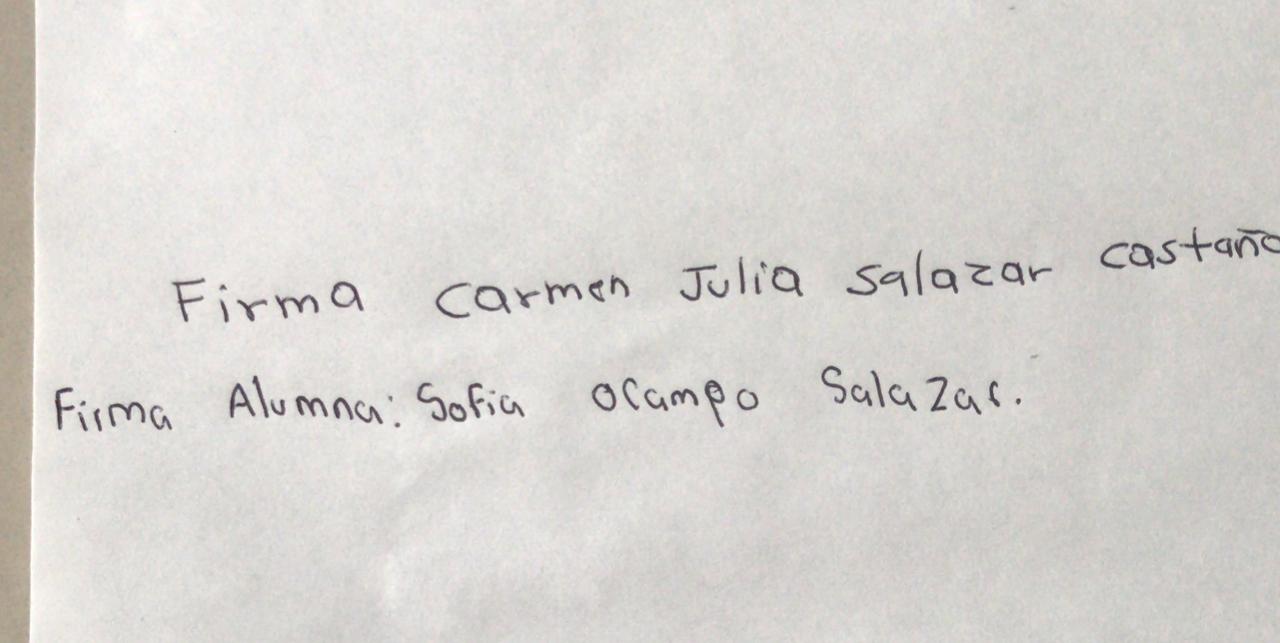 Firma Carmen Julia Salazar castaño
Firma Alumna: Sofia Ocampo Salazar.